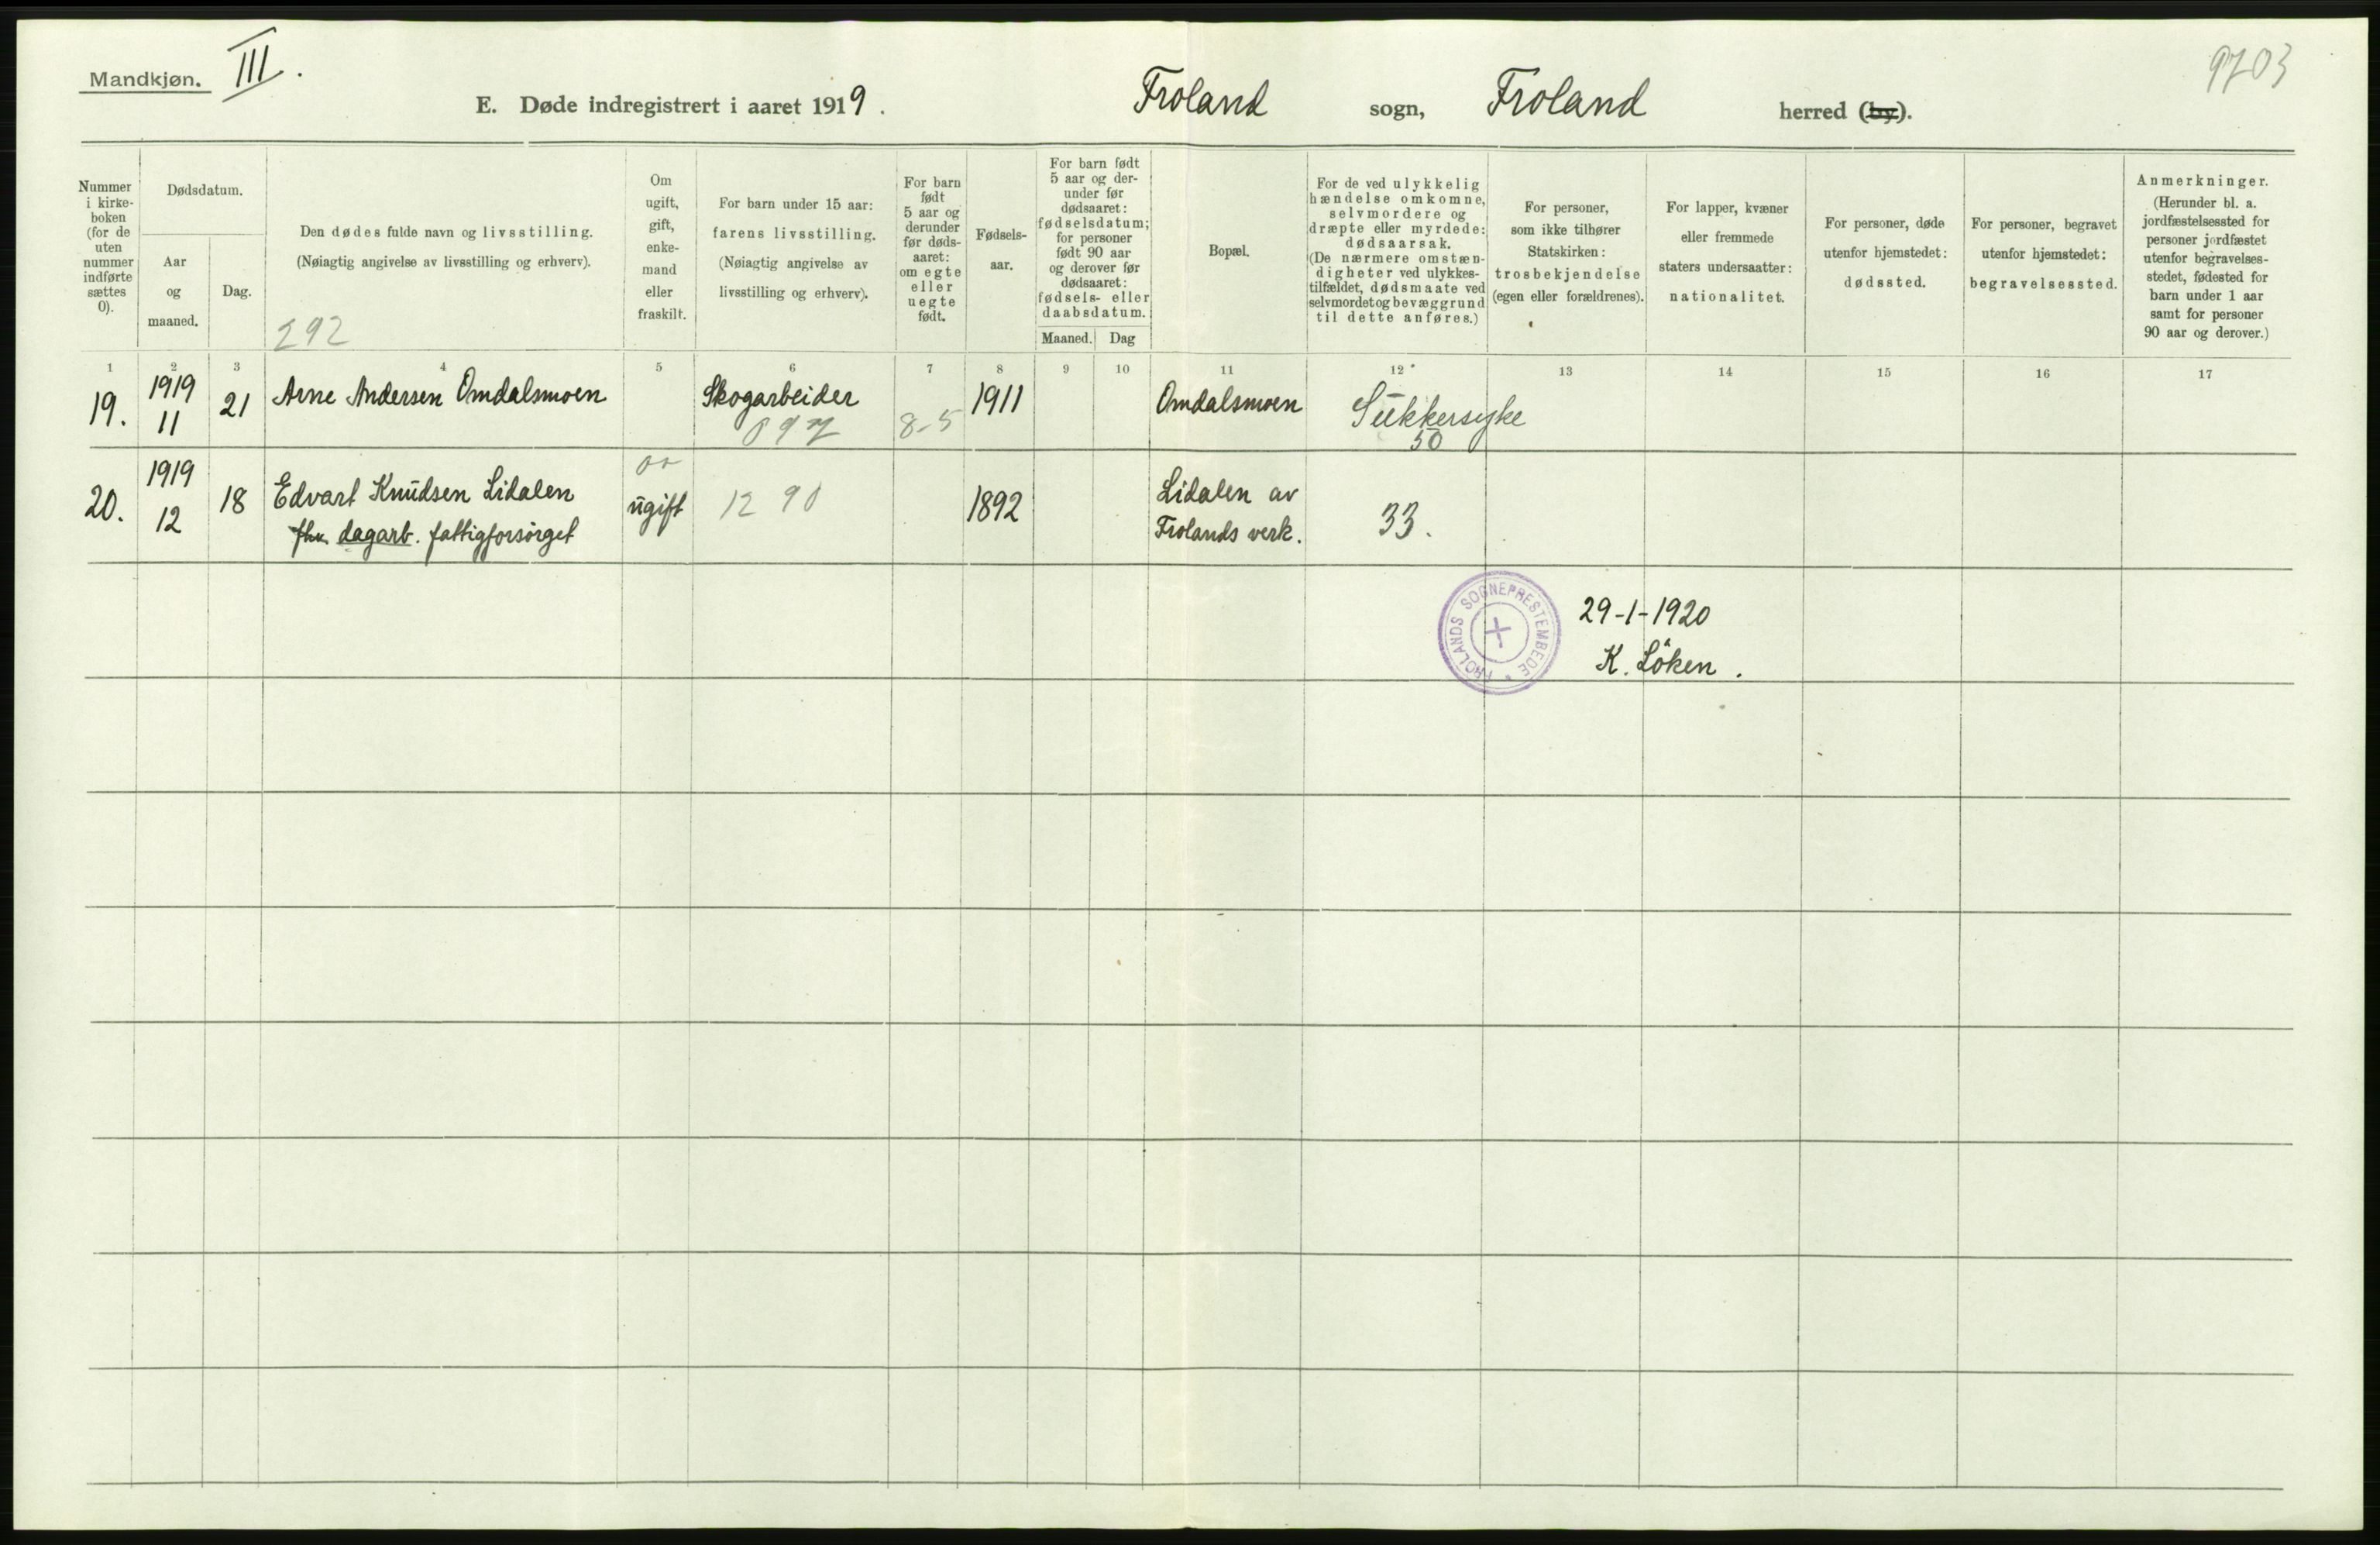 Mandkjøn. III.
9703
E. Døde indregistrert i aaret 1919. Froland sogn, Froland herred (by).
Nummer
i kirke-
boken
(for de
uten
nummer
indførte
sættes
0).
Dødsdatum.
Aar
og
maaned.
Dag.
Den dødes fulde navn og livsstilling.
(Nøiagtig angivelse av livsstilling og erhverv).
292
Om
ugift,
gift,
enke-
mand
eller
fraskilt.
For barn under 15 aar:
farens livsstilling.
(Nøiagtig angivelse av
livsstilling og erhverv).
For barn
født
5 aar og
derunder
før døds-
aaret:
om egte
eller
uegte
født.
Fødsels-
aar.
For barn født
5 aar og der-
under før
dødsaaret:
fødselsdatum;
for personer
født 90 aar
og derover før
dødsaaret:
fødsels- eller
daabsdatum.
Maaned. Dag
Bopæl.
For de ved ulykkelig
hændelse omkomne,
selvmordere og
dræpte eller myrdede:
dødsaarsak.
(De nærmere omstæn-
digheter ved ulykkes-
tilfældet, dødsmaate ved
selvmordet og bevæggrund
til dette anføres.)
For personer,
som ikke tilhører
Statskirken:
trosbekjendelse
(egen eller forældrenes).
For lapper, kvæner
eller fremmede
staters undersaatter:
nationalitet.
For personer, døde
utenfor hjemstedet:
dødssted.
For personer, begravet
utenfor hjemstedet:
begravelsessted.
Anmerkninger.
(Herunder bl. a.
jordfæstelsessted for
personer jordfæstet
utenfor begravelses-
stedet, fødested for
barn under 1 aar
samt for personer
90 aar og derover.)
1 2 3 4 5 6 7 8 9 10 11 12 13 14 15 16 17
19. 1919 21 Arne Andersen Omdalsmoen Skogarbeider 1911 Omdalsmoen Sukkersyke
11 097 8-5 50
20. 1919 18 Edvart Knudsen Lidalen ugift 12 90 1892 Lidalen av 33.
12 dagarb. fattigforsörget Frolands verk.
FROLANDS SOGNEPRESTEMBEDE
29-1-1920
K. Löken.